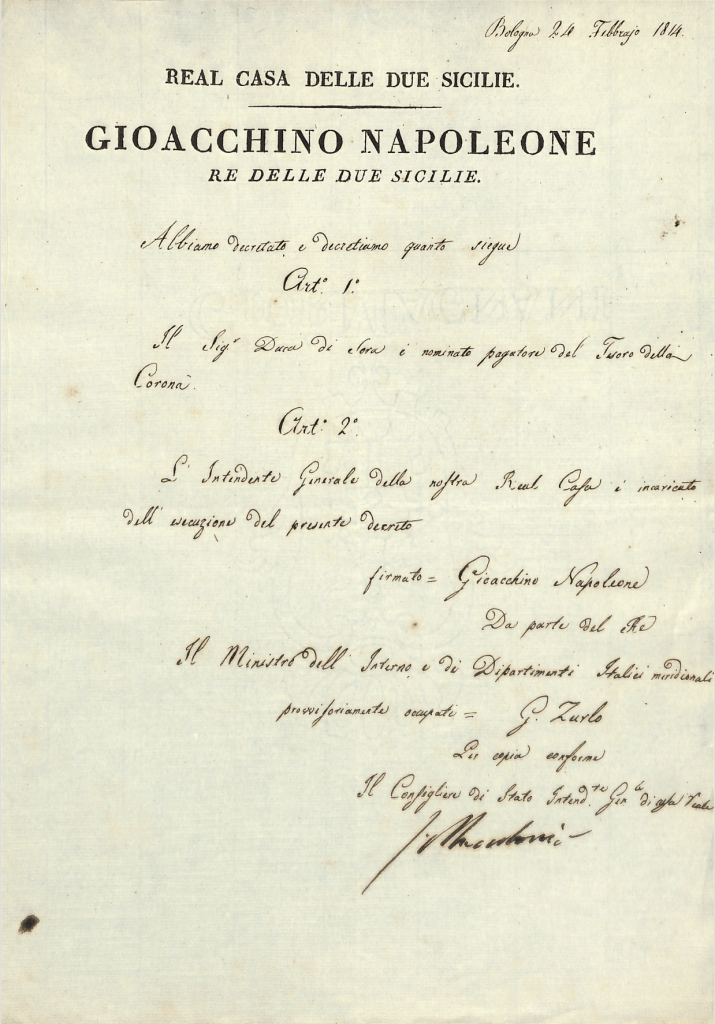 Bologna 24 Febbrajo 1814.
REAL CASA DELLE DUE SICILIE.
GIOACCHINO NAPOLEONE
RE DELLE DUE SICILIE.
Abbiamo decretato, e decretiamo quanto siegue
Art.º 1.º
Il Sig.r Duca di Sora è nominato pagatore del Tesoro della
Corona.
Art.º 2.º
L'Intendente Generale della nostra Real Casa è incaricato
dell'esecuzione del presente decreto
firmato = Gioacchino Napoleone
Da parte del Rè
Il Ministro dell'Interno, e di Dipartimenti Italici meridionali
provvisoriamente occupati = G. Zurlo
Per copia conforme
Il Consigliere di Stato Intend.te Gen.le di casa reale